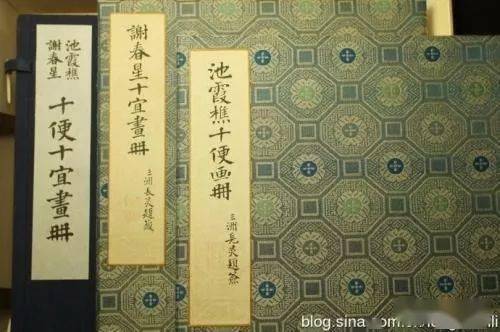 池霞樵
謝春星
十便十宜畫冊
謝春星十宜畫冊
池霞樵十便画冊
blog.sina